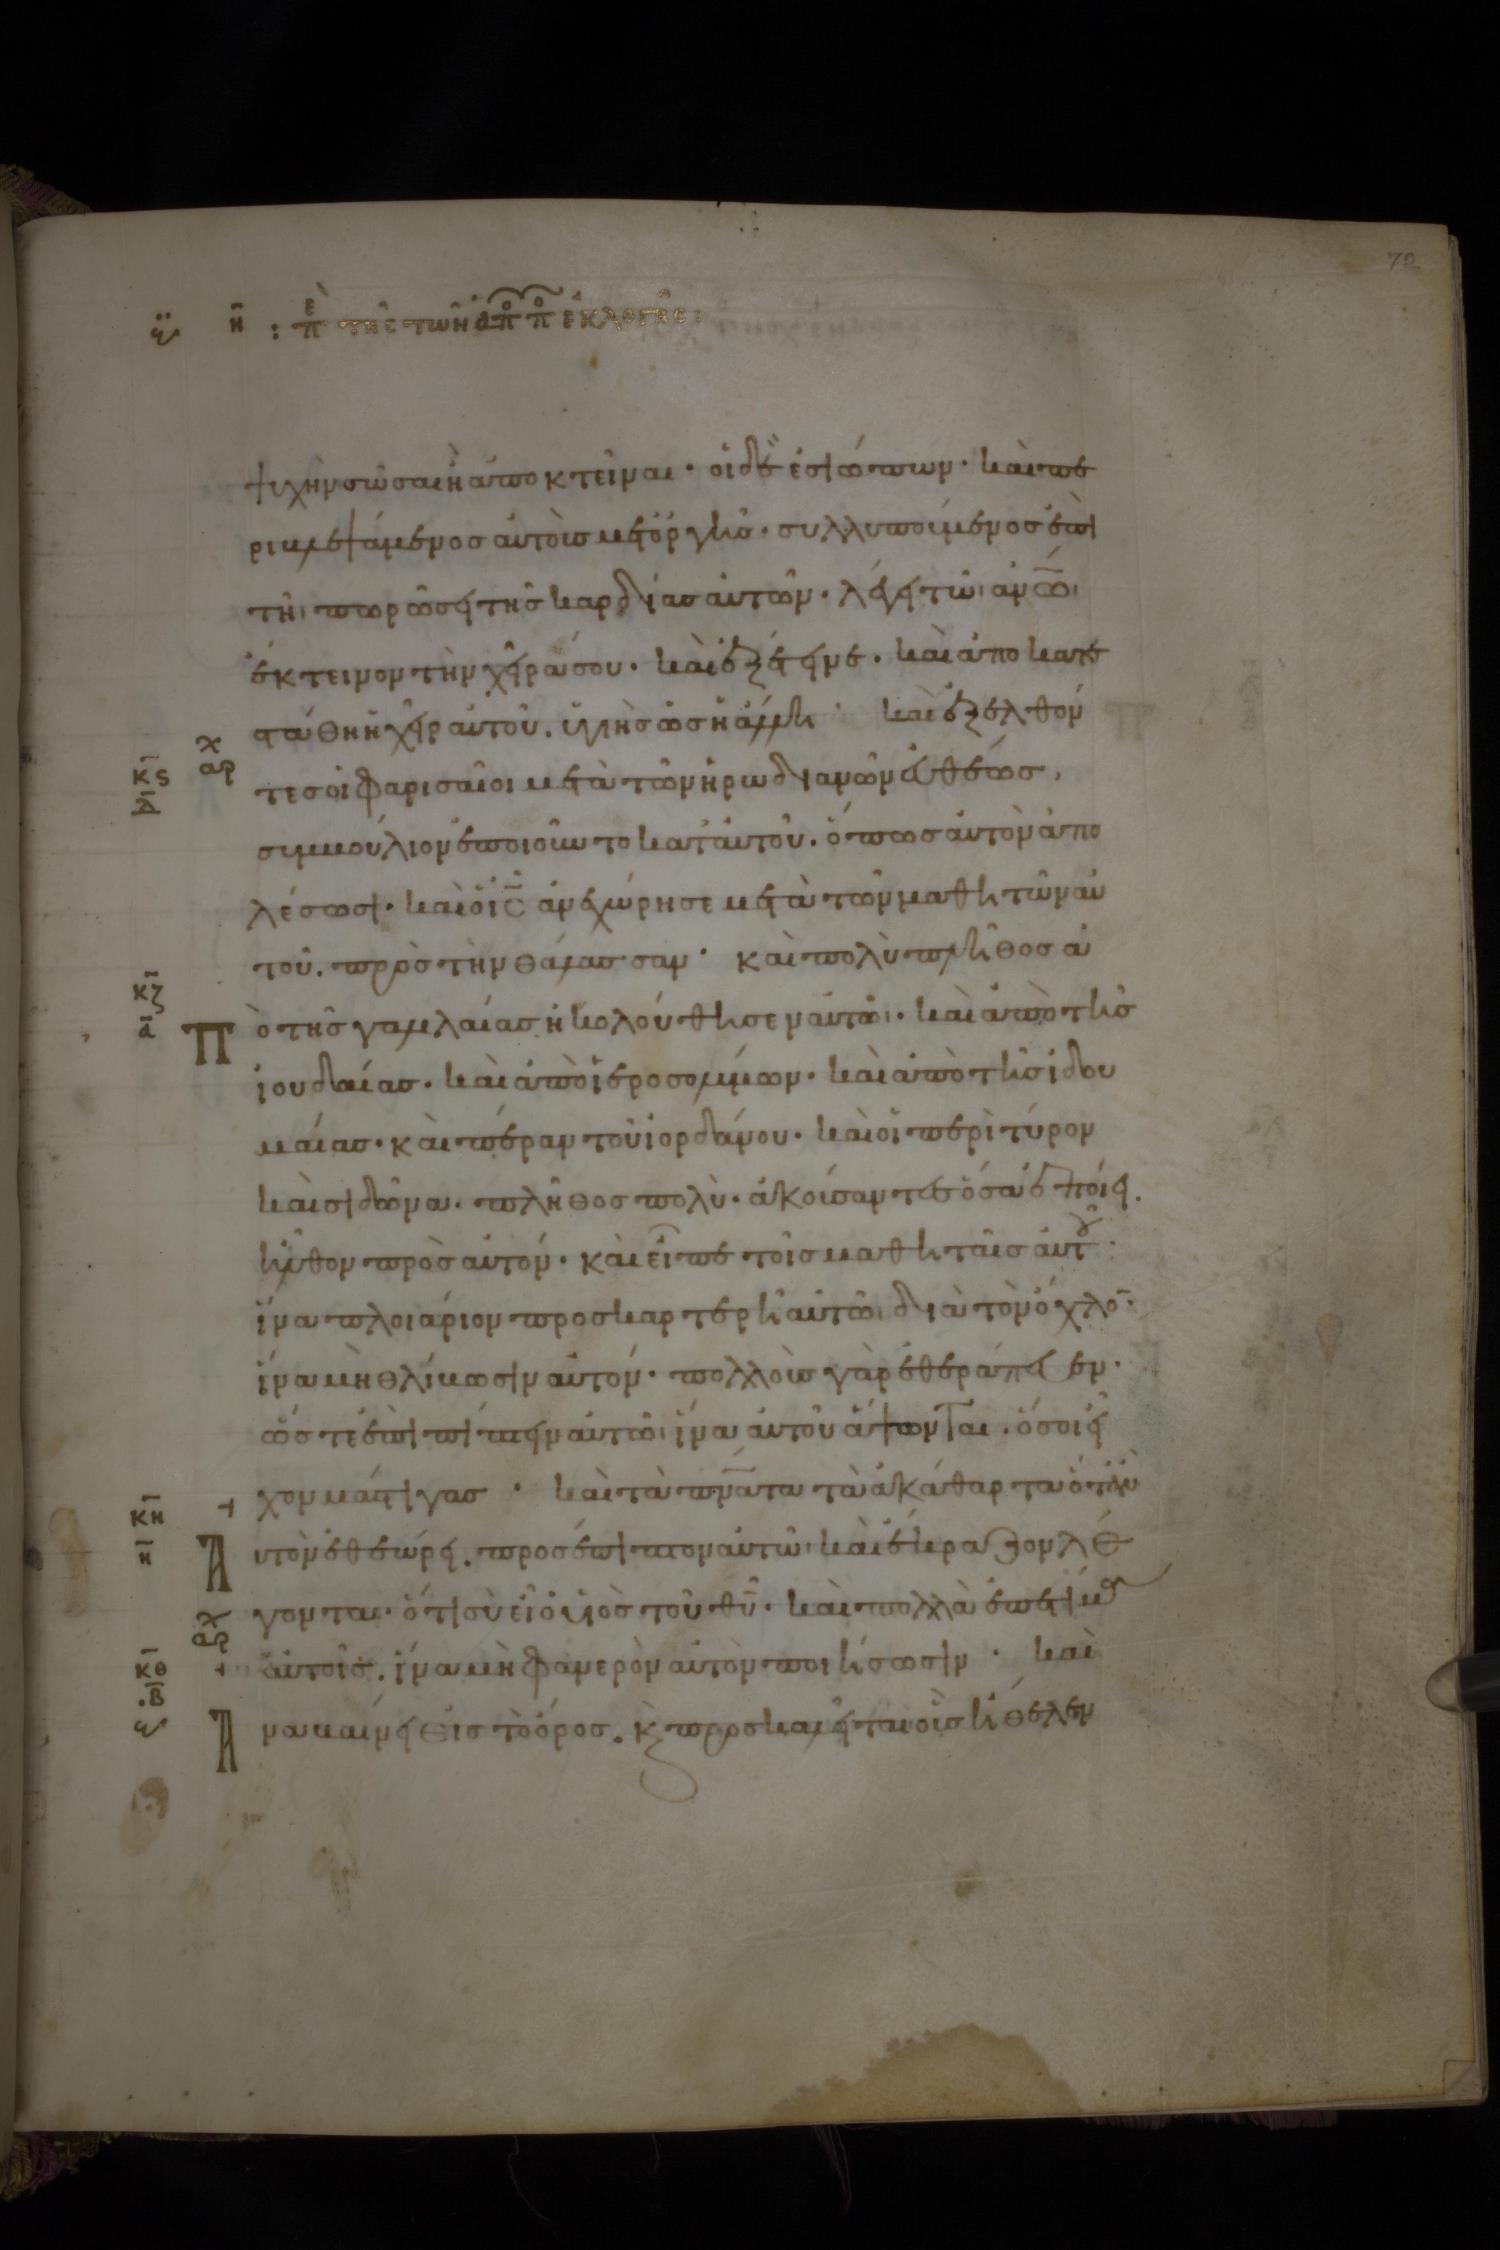 72
η̄ : πε τῆς τῶν ἀπο πο ἐκλογῆς :
ψυχὴν σῶσαι ἢ ἀποκτεῖναι · οἱ δὲ ἐσιώπων · καὶ πε
ριβλεψάμενος αὐτοὺς μετ ὀργῆς · συλλυπούμενος ἐπὶ
τῆι πωρώσει τῆς καρδίας αὐτῶν · λέγει τῶι ἀνω̅ι
ἔκτεινον τὴν χεῖρα σου · καὶ ἐξέτεινε · καὶ ἀποκατε
στάθη ἡ χεὶρ αὐτοῦ . ὑγιὴς ὡς ἡ ἄλλη · καὶ ἐξελθόν
τες οἱ φαρισαῖοι μετὰ τῶν ἡρωδιανῶν εὐθέως ,
συμβούλιον ἐποιοῦν το κατ αὐτοῦ . ὅπως αὐτὸν ἀπο
λέσωσι · καὶ ὁ ι̅ς̅ ἀνεχώρησε μετὰ τῶν μαθητῶν αὐ
τοῦ . πρὸς τὴν θάλασσαν · καὶ πολὺ πλῆθος ἀ
πὸ τῆς γαλιλαίας ἠκολούθησεν αὐτῶι · καὶ ἀπὸ τῆς
ἰουδαίας · καὶ ἀπὸ ἱεροσολύμων · καὶ ἀπὸ τῆς ἰδου
μαίας · καὶ πέραν τοῦ ἰορδάνου · καὶ οἱ περὶ τύρον
καὶ σιδῶνα . πλῆθος πολὺ · ἀκούσαντες ὅσα ἐποίει .
ἦλθον πρὸς αὐτόν · καὶ εἶπε τοῖς μαθηταῖς αὐτοῦ ·
ἵνα πλοιάριον προσκαρτέρῃ αὐτῶι διὰ τὸν ὄχλον ·
ἵνα μὴ θλίβωσιν αὐτόν · πολλοὺς γὰρ ἐθεράπευσεν ·
ὥστε ἐπιπίπτειν αὐτῶι ἵνα αὐτοῦ ἅψωνται . ὅσοι εἶ
χον μάστιγας · καὶ τὰ πν̅ατα τὰ ἀκάθαρτα ὅταν
αὐτὸν ἐθεώρει . προσέπιπτον αὐτῶι καὶ ἔκραζον λέ
γοντα · ὅτι σὺ εἶ ὁ υἱὸς τοῦ θ̅υ̅ · καὶ πολλὰ ἐπετίμα
αὐτοῖς . ἵνα μὴ φανερὸν αὐτὸν ποιήσωσιν · καὶ
ἀναβαίνει εἰς τὸ ὄρος . κ̀ προσκαλεῖται οὓς ἤθελεν
αρχ
κ̅ς̅
δ̅
κ̅ζ̅
α̅
κ̅η̅
η̅
αρχ
κ̅θ̅
β̅